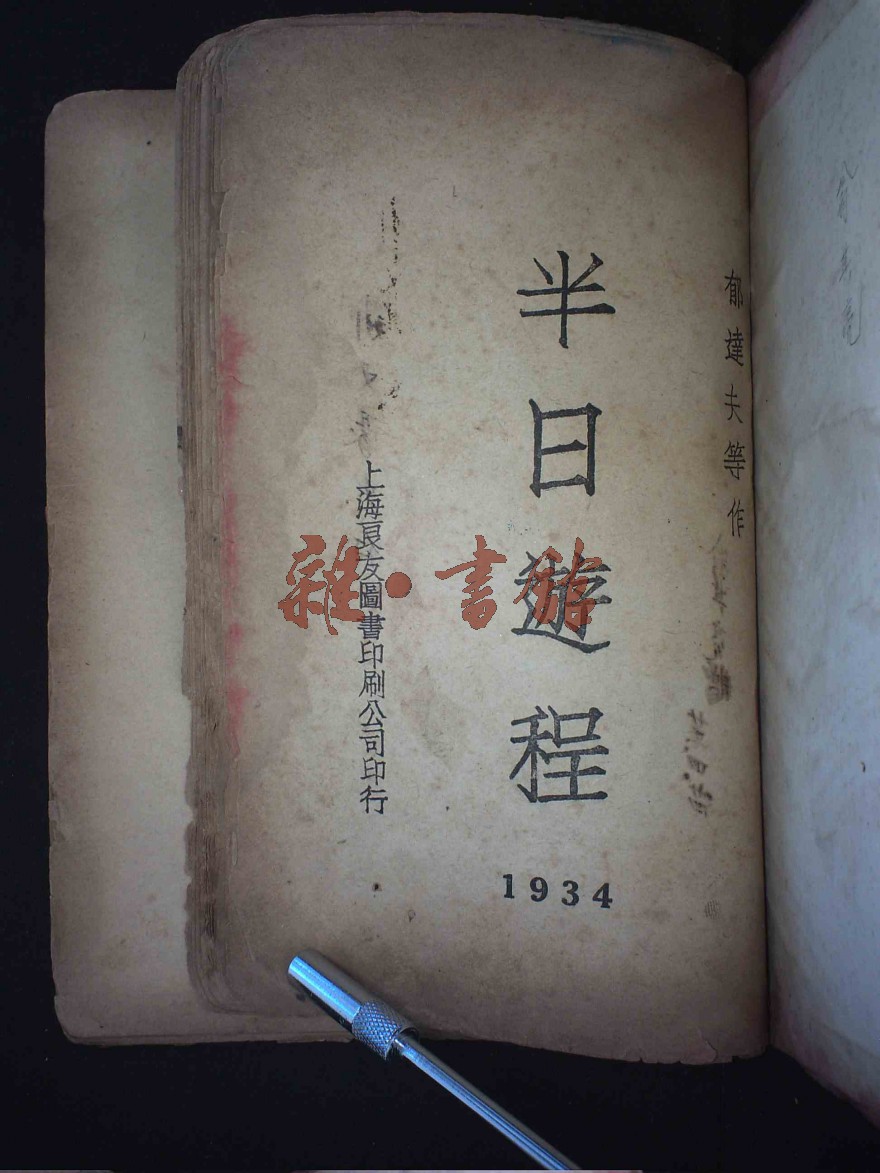 郁達夫等作
半日遊程
1934
上海良友圖書印刷公司印行
雜·書游